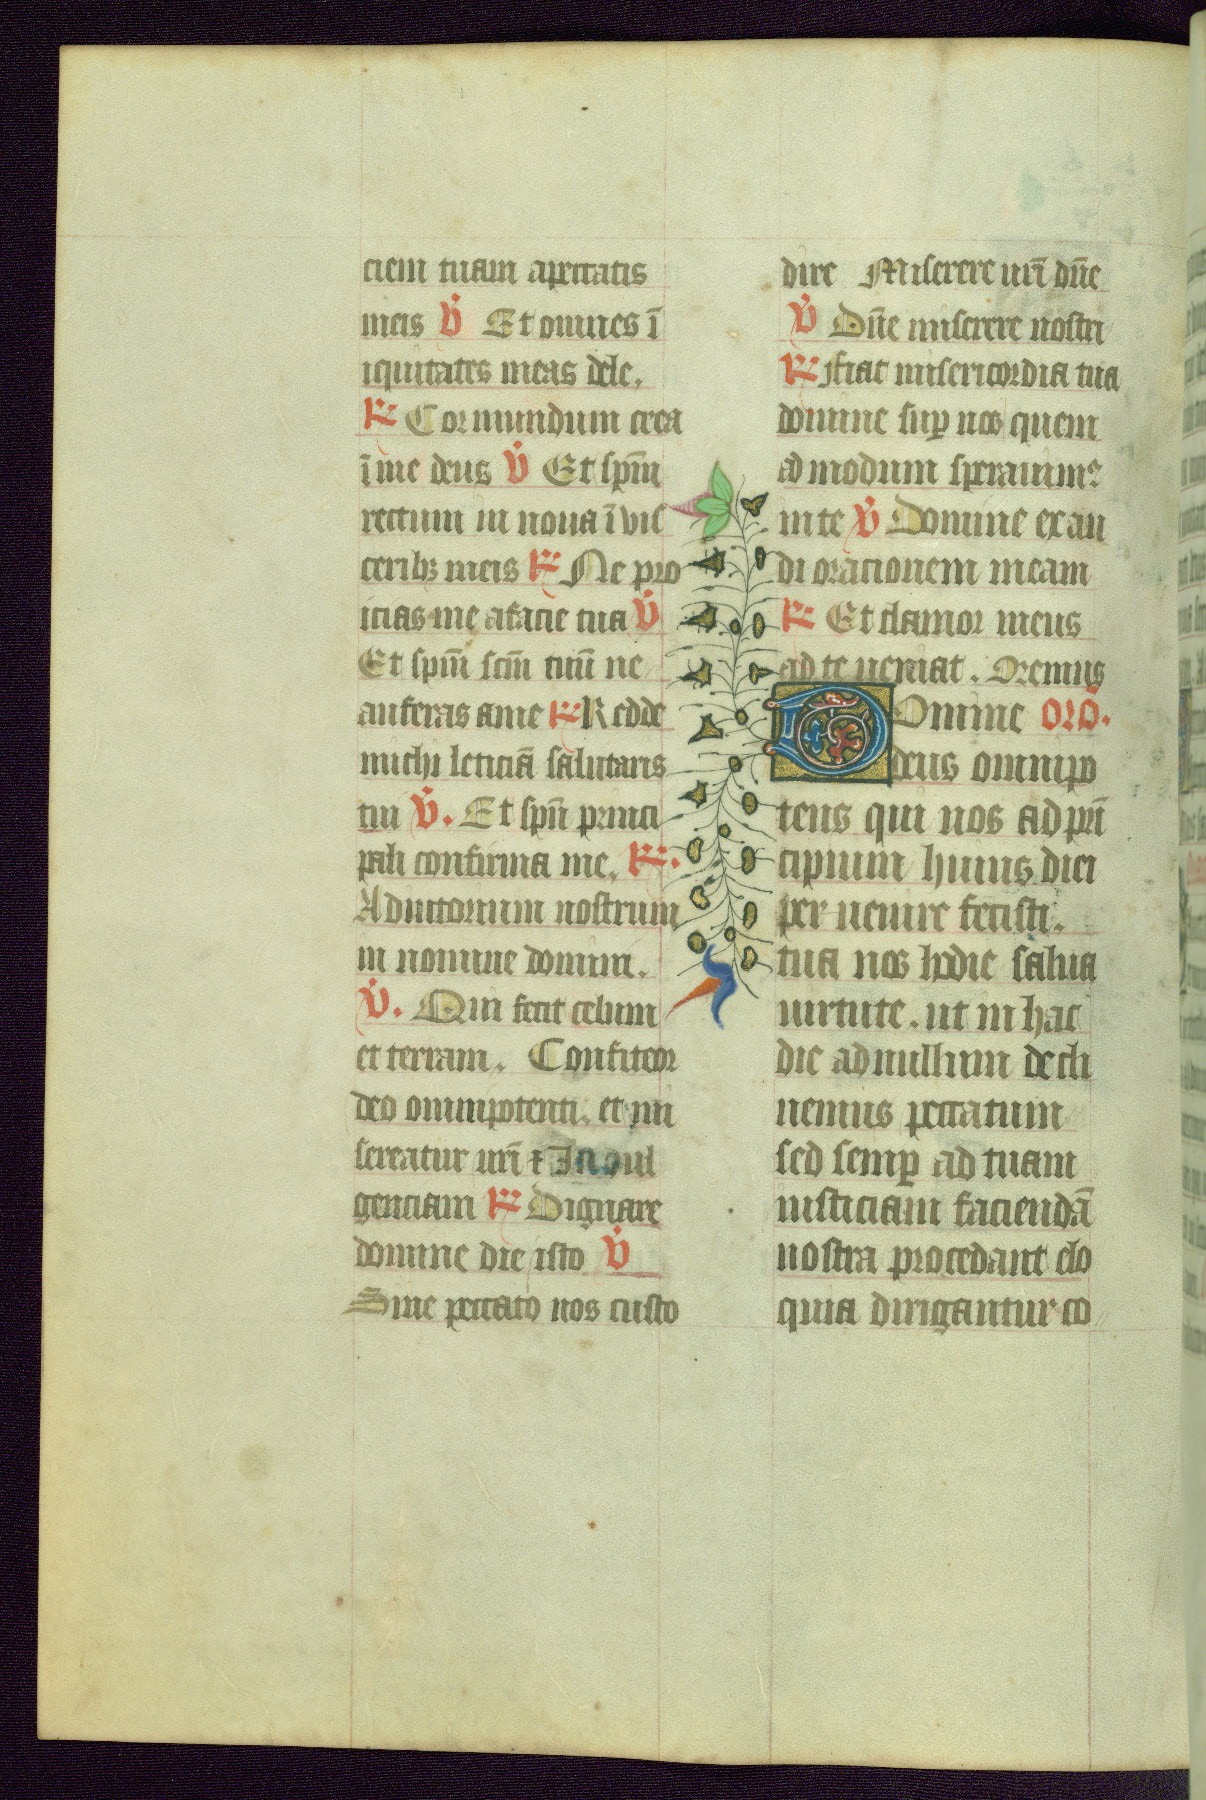 ciem tuam apeccatis
meis v̇ Et omnes ī
iquitates meas dele.
R Cor mundum crea
ī me deus v̇ Et spm̄
rectum in noua ī vis
ceribꝫ meis R Ne pro
icias me afacie tua v̇
Et spm̄ scm̄ tuū ne
auferas ame R Redde
michi leticiā salutaris
tui v̇. Et spū princi
pali confirma me. R.
Adiutorium nostrum
in nomine domini.
v̇. Qui fecit celum
et terram. Confiteor
deo omnipotenti. et mi
sereatur urī ⁊ Indul
genciam R Dignare
domine die isto v̇
Sine peccato nos custo
dire Miserere urī dn̄e
v̇ Dn̄e miserere nostri
R ffiat misericordia tua
domine suꝑ nos quem
ad modum sperauimꝰ
in te v̇ Domine exau
di oracionem meam
R Et clamor meus
ad te ueniat. Oremus
Domine orō.
deus omnipo
tens qui nos ad prī
cipium huius diei
per uenire fecisti.
tua nos hodie salua
uirtute. ut in hac
die ad nullum decli
nemus peccatum
sed semꝑ ad tuam
iusticiam faciendā
nostra procedant elo
quia dirigantur co